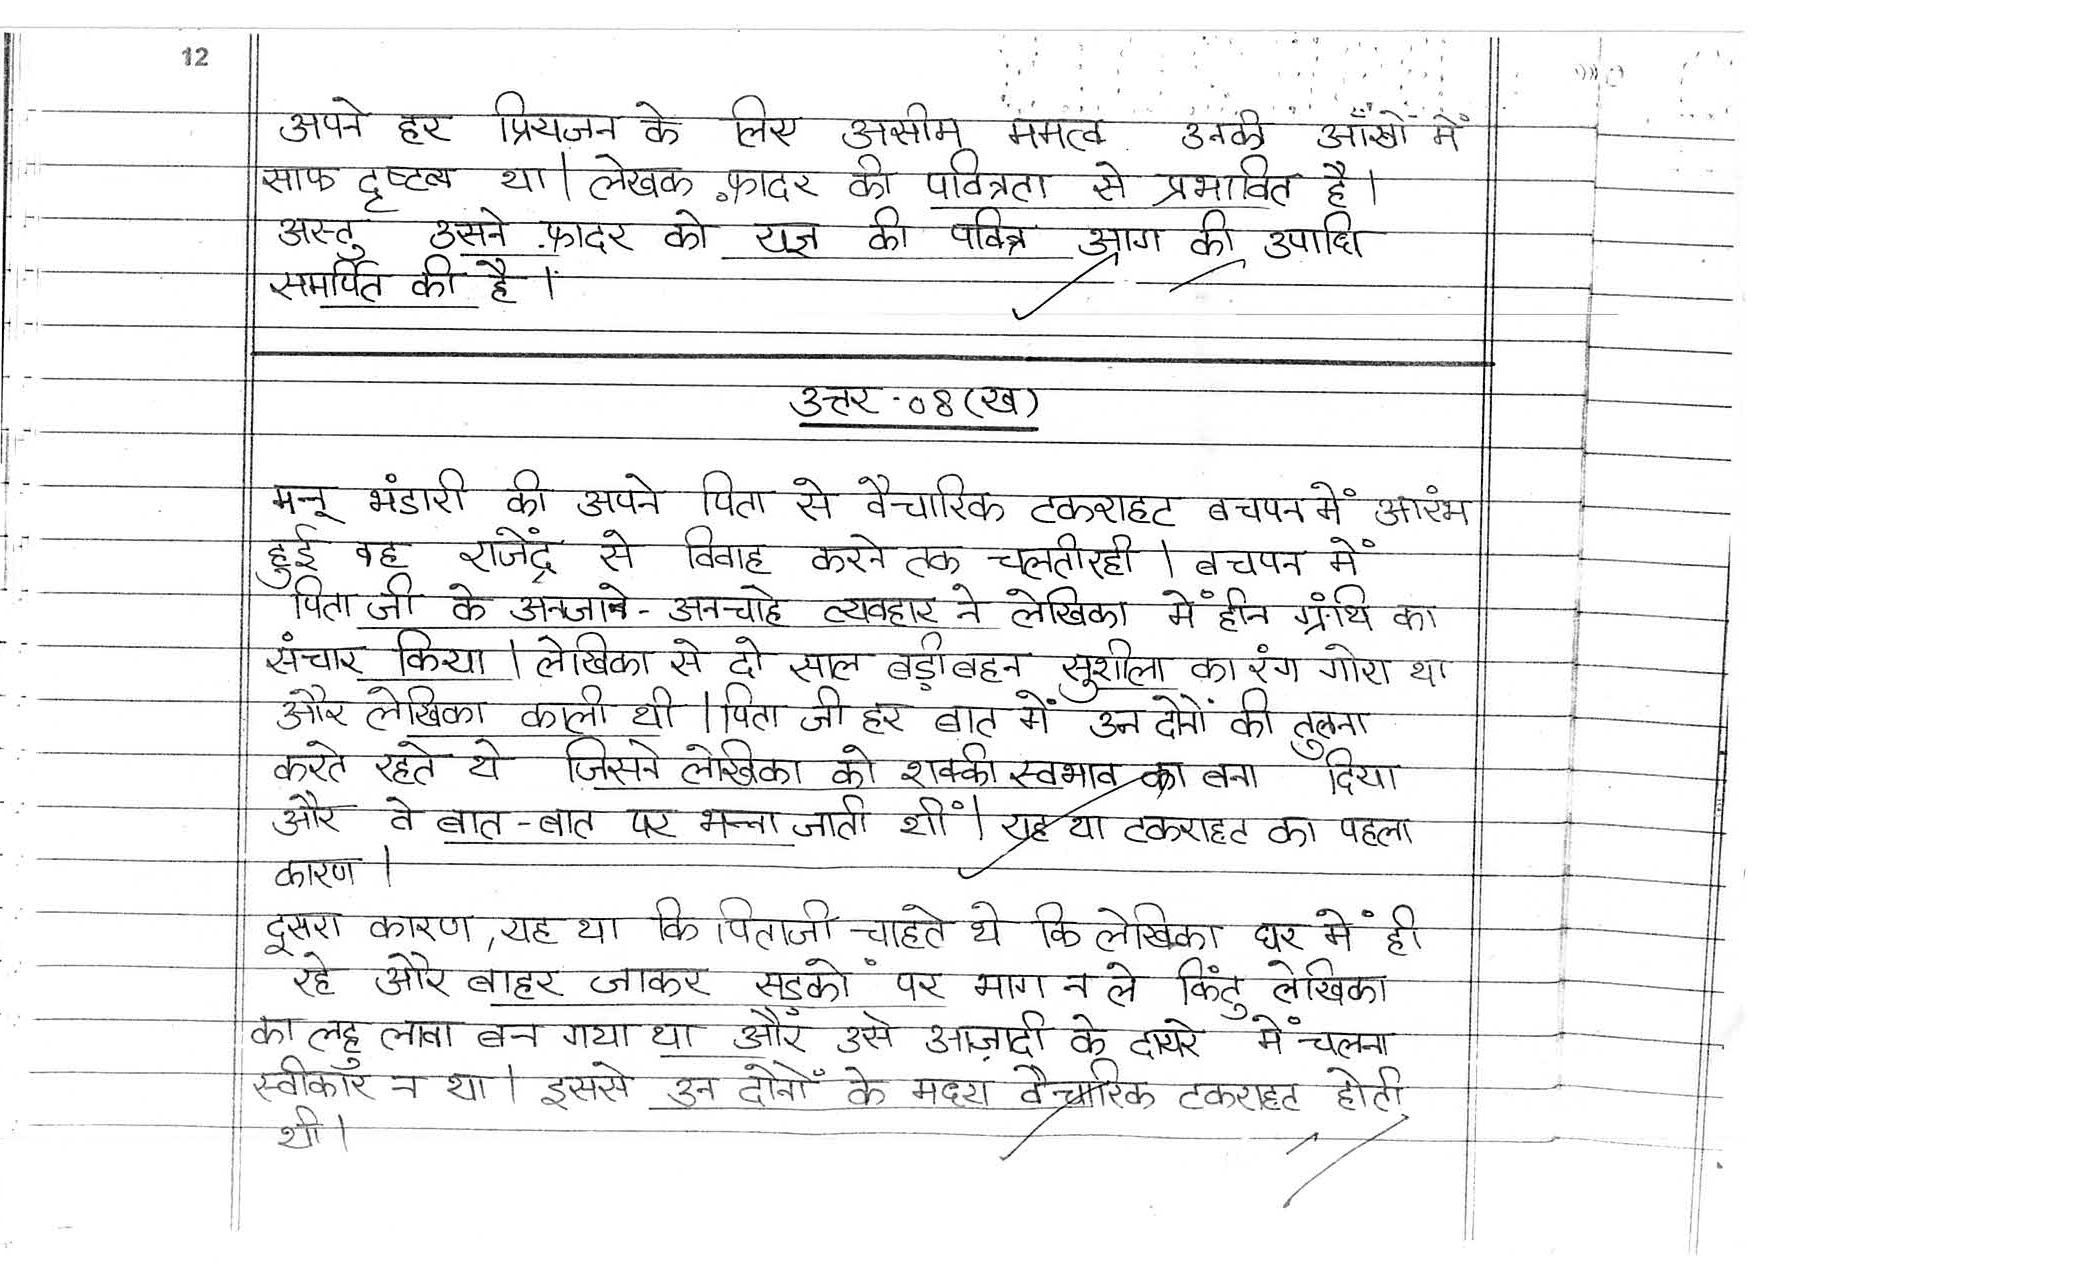 12
अपने हर प्रियजन के लिए असीम ममत्व उनकी आँखों में
साफ दृष्टव्य था। लेखक फ़ादर की पवित्रता से प्रभावित है।
अस्तु उसने फ़ादर को यज्ञ की पवित्र आग की उपाधि
समर्पित की है।
उत्तर-08(ख)
मन्नू भंडारी की अपने पिता से वैचारिक टकराहट बचपन में आरंभ
हुई वह राजेंद्र से विवाह करने तक चलती रही। बचपन में
पिता जी के अनजाने-अनचाहे व्यवहार ने लेखिका में हीन ग्रंथि का
संचार किया। लेखिका से दो साल बड़ी बहन सुशीला का रंग गोरा था
और लेखिका काली थी। पिता जी हर बात में उन दोनों की तुलना
करते रहते थे जिसने लेखिका को शक्की स्वभाव का बना दिया
और वे बात-बात पर भन्ना जाती थीं। यह था टकराहट का पहला
कारण।
दूसरा कारण, यह था कि पिताजी चाहते थे कि लेखिका घर में ही
रहे और बाहर जाकर सड़कों पर भाग न ले किंतु लेखिका
का लहू लावा बन गया था और उसे आज़ादी के दायरे में चलना
स्वीकार न था। इससे उन दोनों के मध्य वैचारिक टकराहट होती
थी।